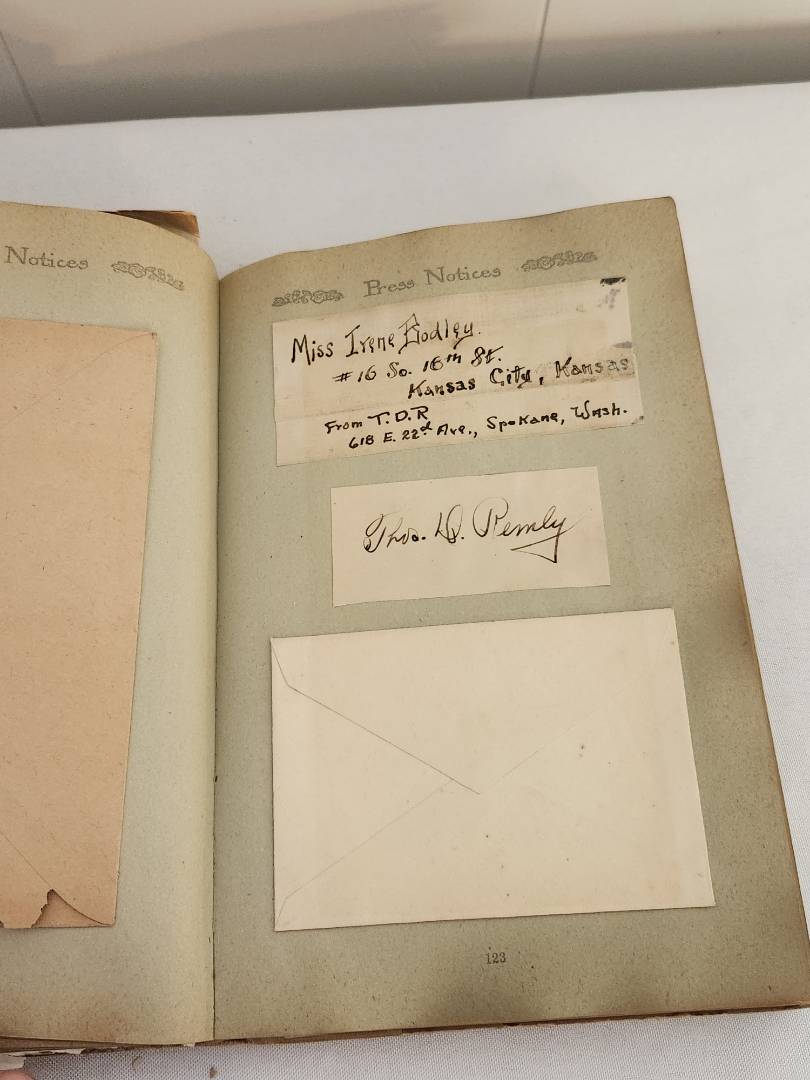 Notices
Press Notices
Miss Irene Bodley.
#16 So. 16th St.
Kansas City, Kansas
From T.D.R
618 E. 22d Ave., Spokane, Wash.
Thos. D. Remly
123